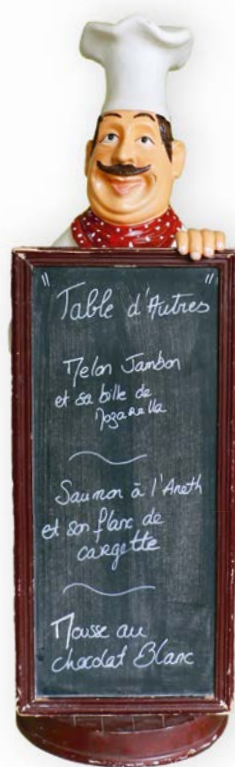 " Table d'Autres "
Melon Jambon
et sa bille de
Mozarella
Saumon à l'Aneth
et son flanc de
cargette
Mousse au
chocolat Blanc